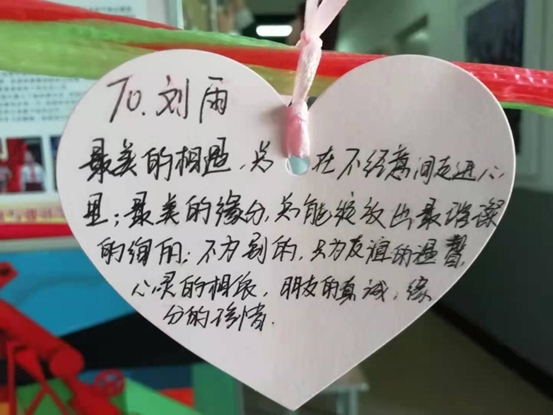 To.刘雨
最美的相遇,总在不经意间走进心
里;最美的缘分,总能绽放出最璀璨
的绚丽;不为别的,只为友谊的温馨,
心灵的相依,朋友的真诚,缘
分的珍惜.